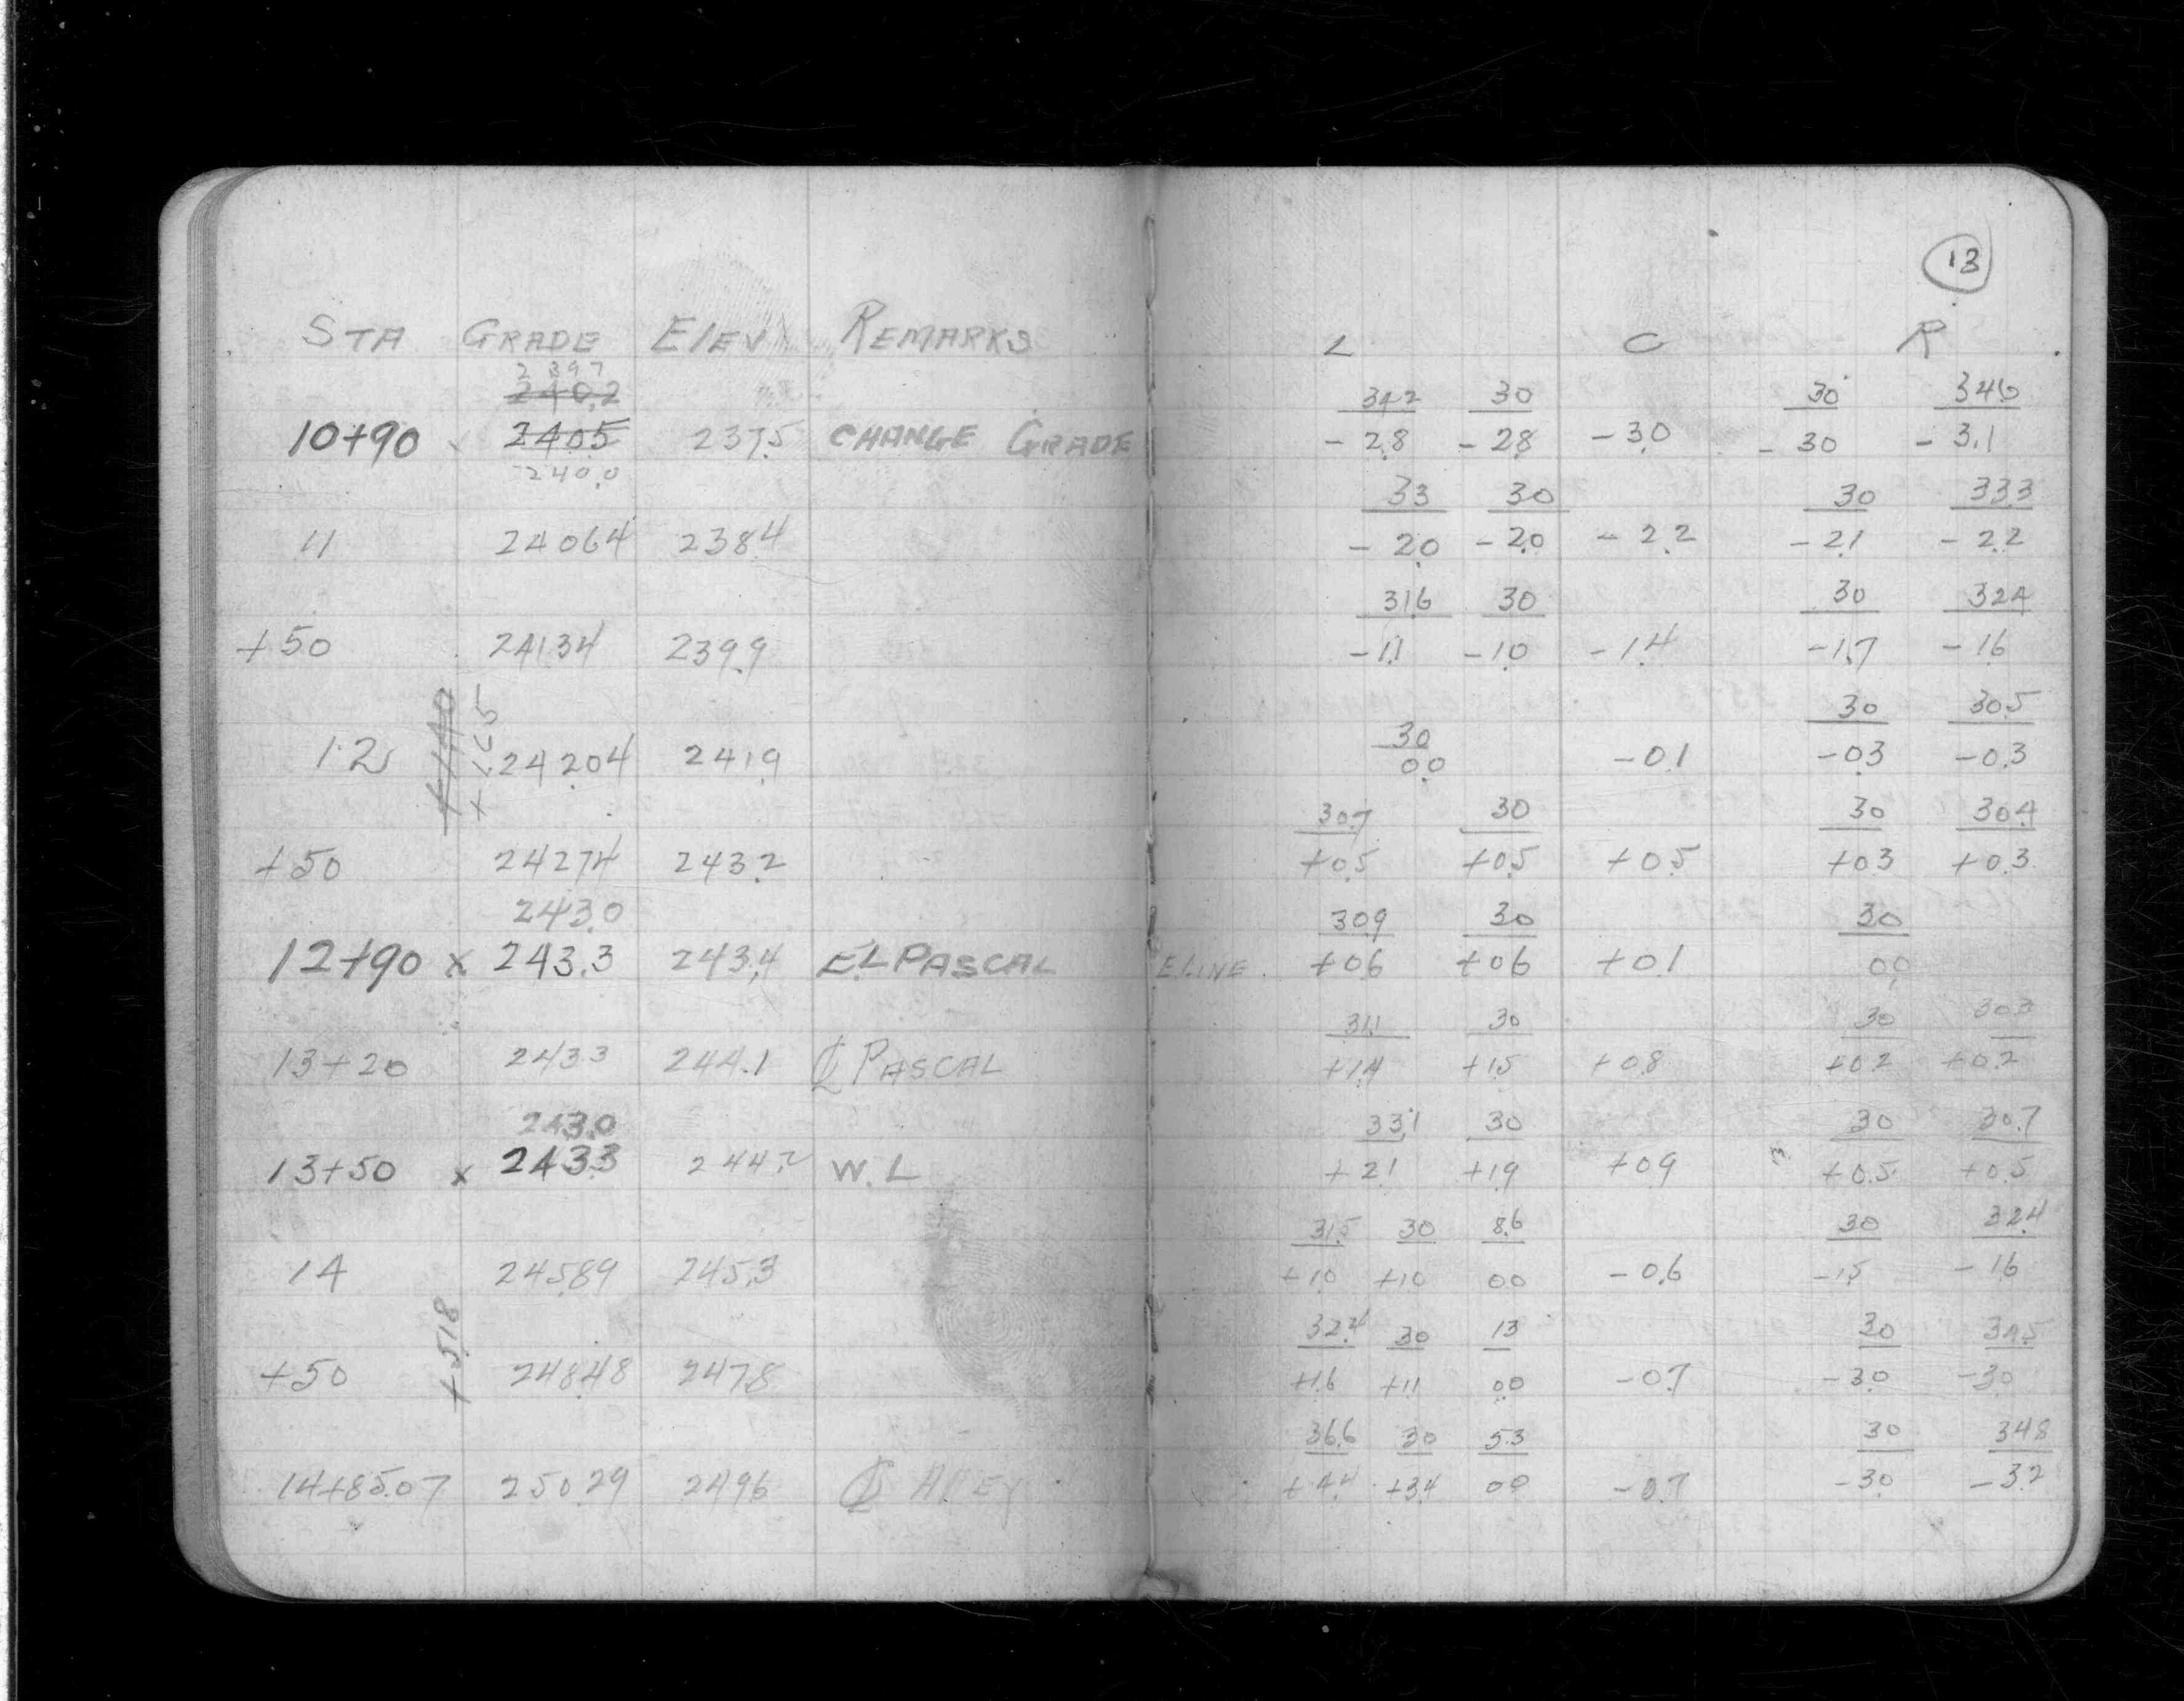 13
STA GRADE ELEV REMARKS L C R
2397
240.2 342 30 30 346
10+90 2405 237.5 CHANGE GRADE -2.8 -2.8 -3.0 -30 -3.1
240.0
33 30 30 333
11 240.64 238.4 -2.0 -2.0 -2.2 -2.1 -2.2
31.6 30 30 32.4
+50 241.34 239.9 -1.1 -1.0 -1.4 -1.7 -1.6
30 30 30.5
12 242.04 241.9 0.0 -0.1 -0.3 -0.3
+1.40
30.7 30 30 30.4
+50 242.74 243.2 +0.5 +0.5 +0.5 +0.3 +0.3
243.0 30.9 30 30
12+90 x 243.3 243.4 E.L PASCAL E.LINE +0.6 +0.6 +0.1 0.0
31.1 30 30 30.3
13+20 243.3 244.1 ℄ PASCAL +1.4 +1.5 +0.8 +0.2 +0.2
243.0 33.1 30 30 30.7
13+50 x 243.3 244.2 W.L +2.1 +1.9 +0.9 +0.5 +0.5
31.5 30 8.6 30 32.4
14 245.89 245.3 +1.0 +1.0 0.0 -0.6 -1.5 -1.6
+5.18
32.4 30 13 30 34.5
+50 248.48 247.8 +1.6 +1.1 0.0 -0.7 -3.0 -3.0
36.6 30 5.3 30 34.8
14+85.07 250.29 249.6 ℄ Alley +4.4 +3.4 0.0 -0.7 -3.0 -3.2